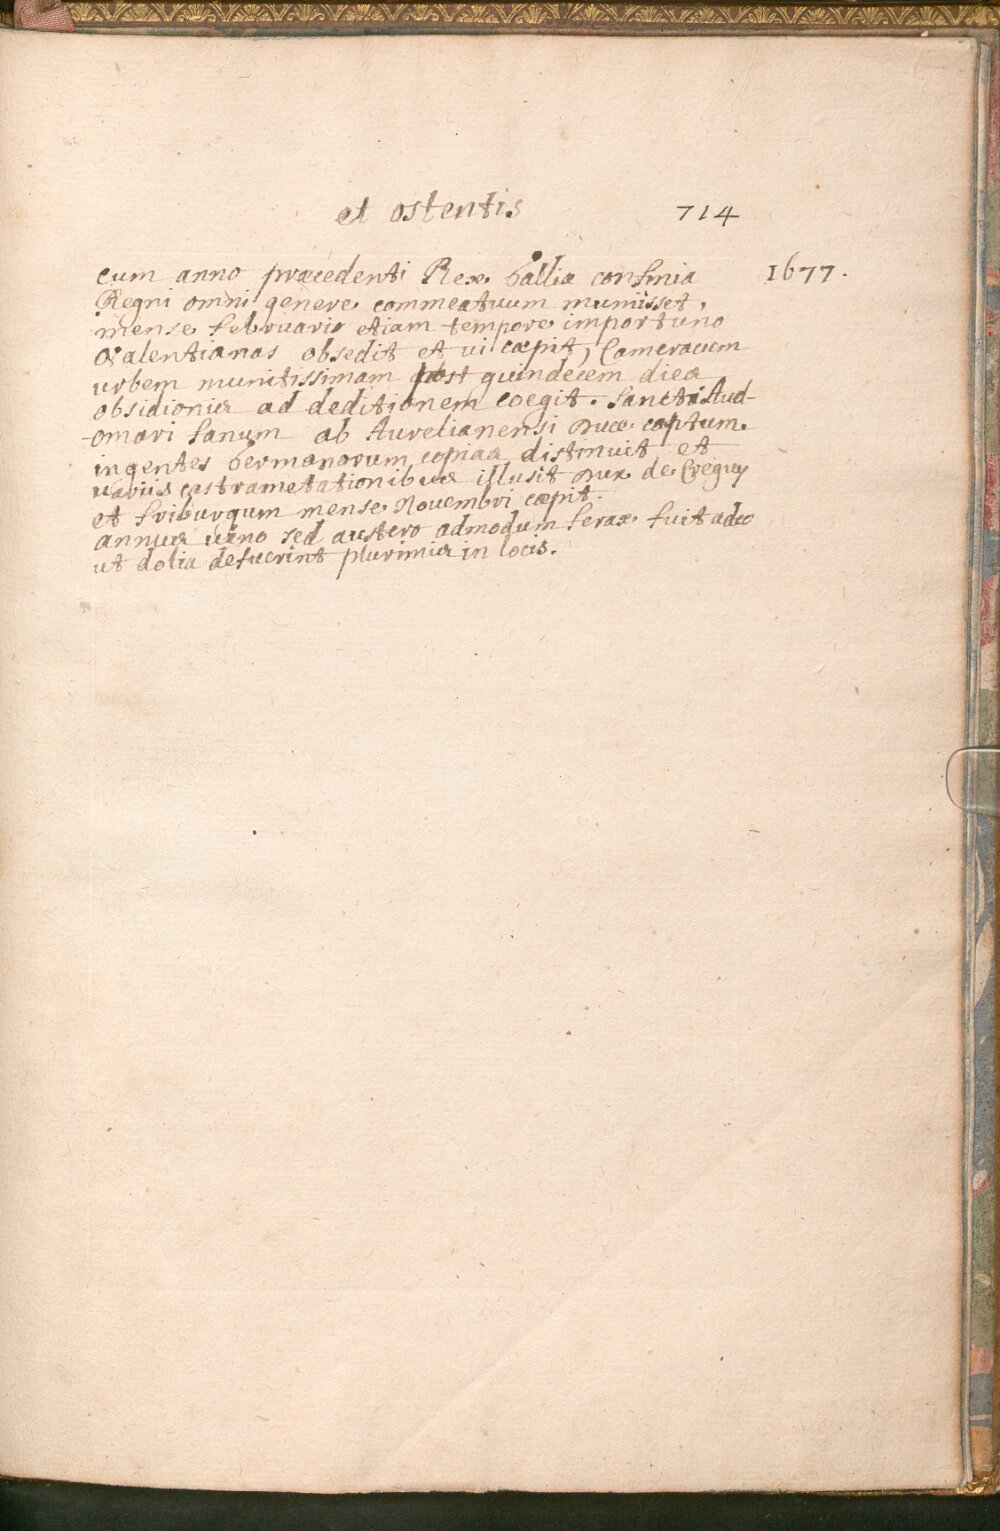 et ostentis 714
cum anno præcedenti Rex Galliæ confinia 1677.
Regni omni genere commeatuum muniisset,
mense februario etiam tempore importuno
Valentianas obsedit et vi cæpit, Cameracum
urbem munitissimam post quindecem dies
obsidionis ad deditionem coegit. Sancti Aud-
-omari fanum ab Aurelianensi Duce captum.
ingentes Germanorum copias distinuit et
variis castrametationibus illusit Dux de Crequy
et friburgum mense Novembri cæpit.
annus vino sed austero admodum ferax fuit adeo
ut dolia defuerint plurimis in locis.